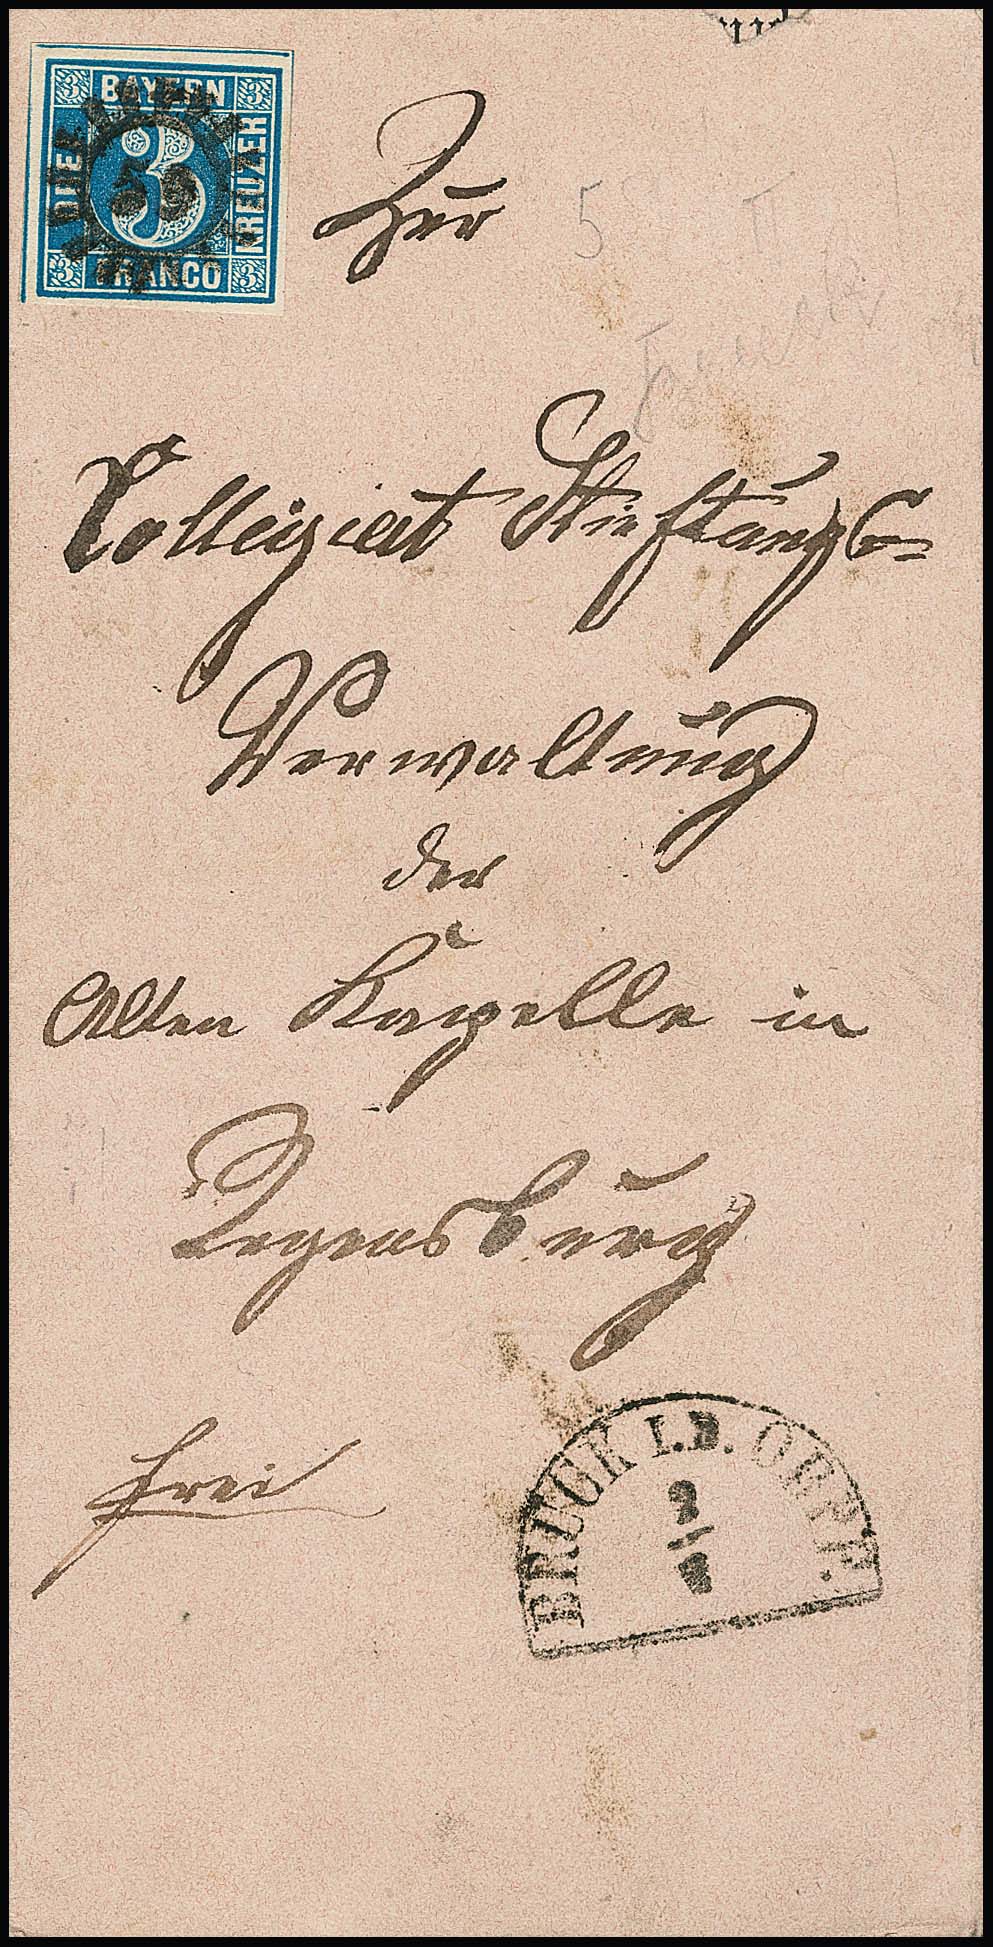 BAYERN
3 3
DREI 3 KREUZER
59
FRANCO
3 3
Zur
5
Collegiat Stieftungs=
Verwaltung
der
Alten Kapelle in
Regensburg
frei
BRUCK I.D. OBPF.
2/